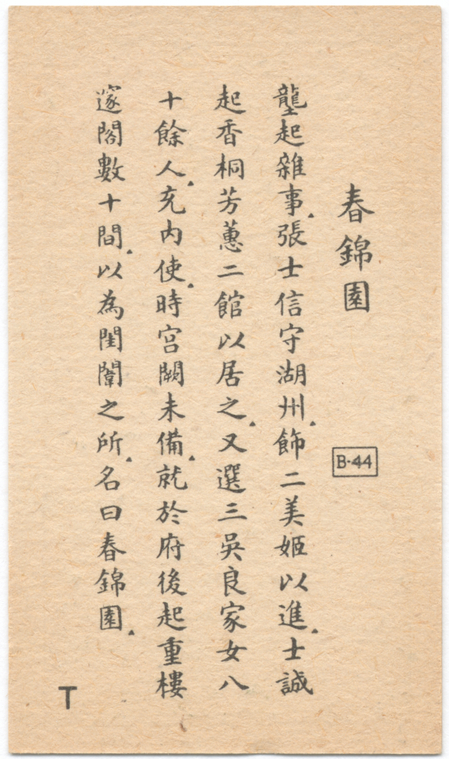 春錦園
B·44
壟起雜事.張士信守湖州.飾二美姬以進.士誠
起香桐芳蕙二館以居之.又選三吳良家女八
十餘人.充內使.時宮闕未備.就於府後起重樓
邃閣數十間.以為閨闥之所.名曰春錦園.
T